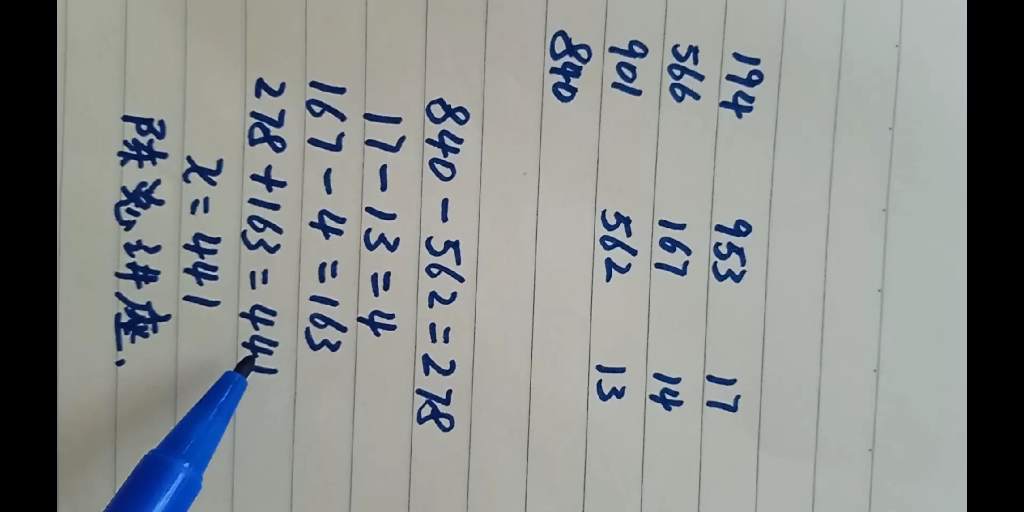 194 953 17
566 167 14
901 562 13
840
840-562=278
17-13=4
167-4=163
278+163=441
x=441
陈总讲座.